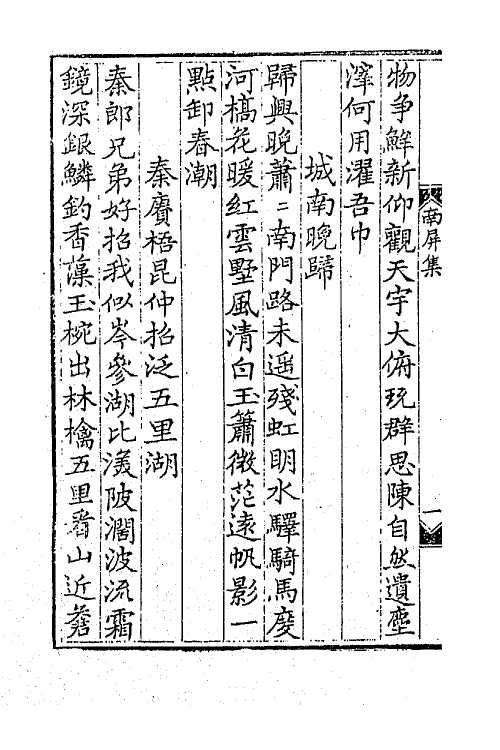 南屏集
一
物爭鮮新仰觀天宇大俯玩群思陳自然遺塵
滓何用濯吾巾
城南晚歸
歸興晚蕭〻南門路未遥殘虹明水驛騎馬度
河橋花暖紅雲墅風清白玉簫微茫遠帆影一
點卸春潮
秦賡梧昆仲招泛五里湖
秦郎兄弟好招我似岑參湖比渼陂濶波流霜
鏡深銀鱗釣香藻玉椀出林檎五里看山近簷